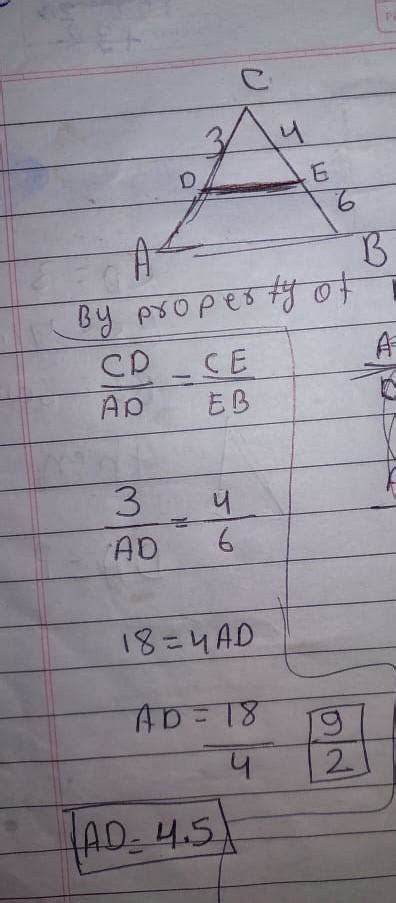 C
3 4
D E
6
A B
By property of
CD/AD = CE/EB
3/AD = 4/6
18 = 4AD
AD = 18/4 9/2
AD = 4.5